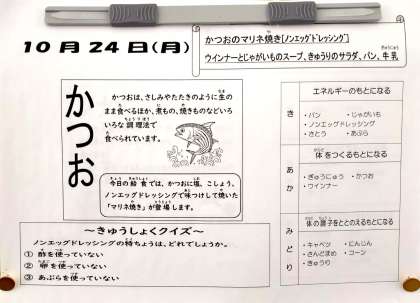 10月24日(月)
かつおのマリネ焼き[ノンエッグドレッシング]
ウインナーとじゃがいものスープ、きゅうりのサラダ、パン、牛乳
かつお
かつおは、さしみやたたきのように生の
まま食べるほか、煮もの、焼きものなどいろ
いろな調理法で
食べられています。
今日の給食では、かつおに塩、こしょう、
ノンエッグドレッシングで味つけして焼いた
「マリネ焼き」が登場します。
～きゅうしょくクイズ～
ノンエッグドレッシングの特ちょうは、どれでしょうか。
① 酢を使っていない
② 卵を使っていない
③ あぶらを使っていない
き
エネルギーのもとになる
・パン ・じゃがいも
・ノンエッグドレッシング
・さとう ・あぶら
あか
体をつくるもとになる
・ぎゅうにゅう ・かつお
・ウインナー
みどり
体の調子をととのえるもとになる
・キャベツ ・にんじん
・さんどまめ ・コーン
・きゅうり